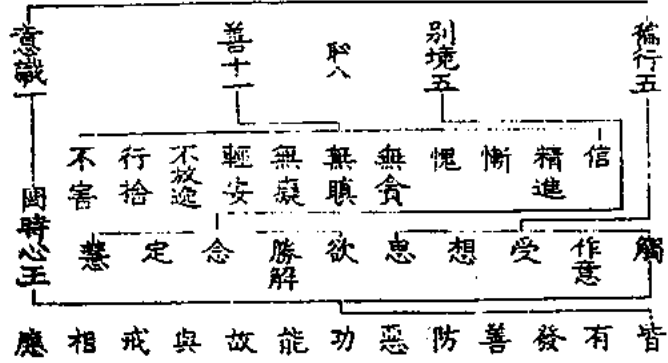 徧行五
别境五
恥八
善十一
意識
信
精進
慚
愧
無貪
無瞋
無癡
輕安
不放逸
行捨
不害
同時心王
觸
作意
受
想
思
欲
勝解
念
定
慧
皆有發善防惡功能故與戒相應